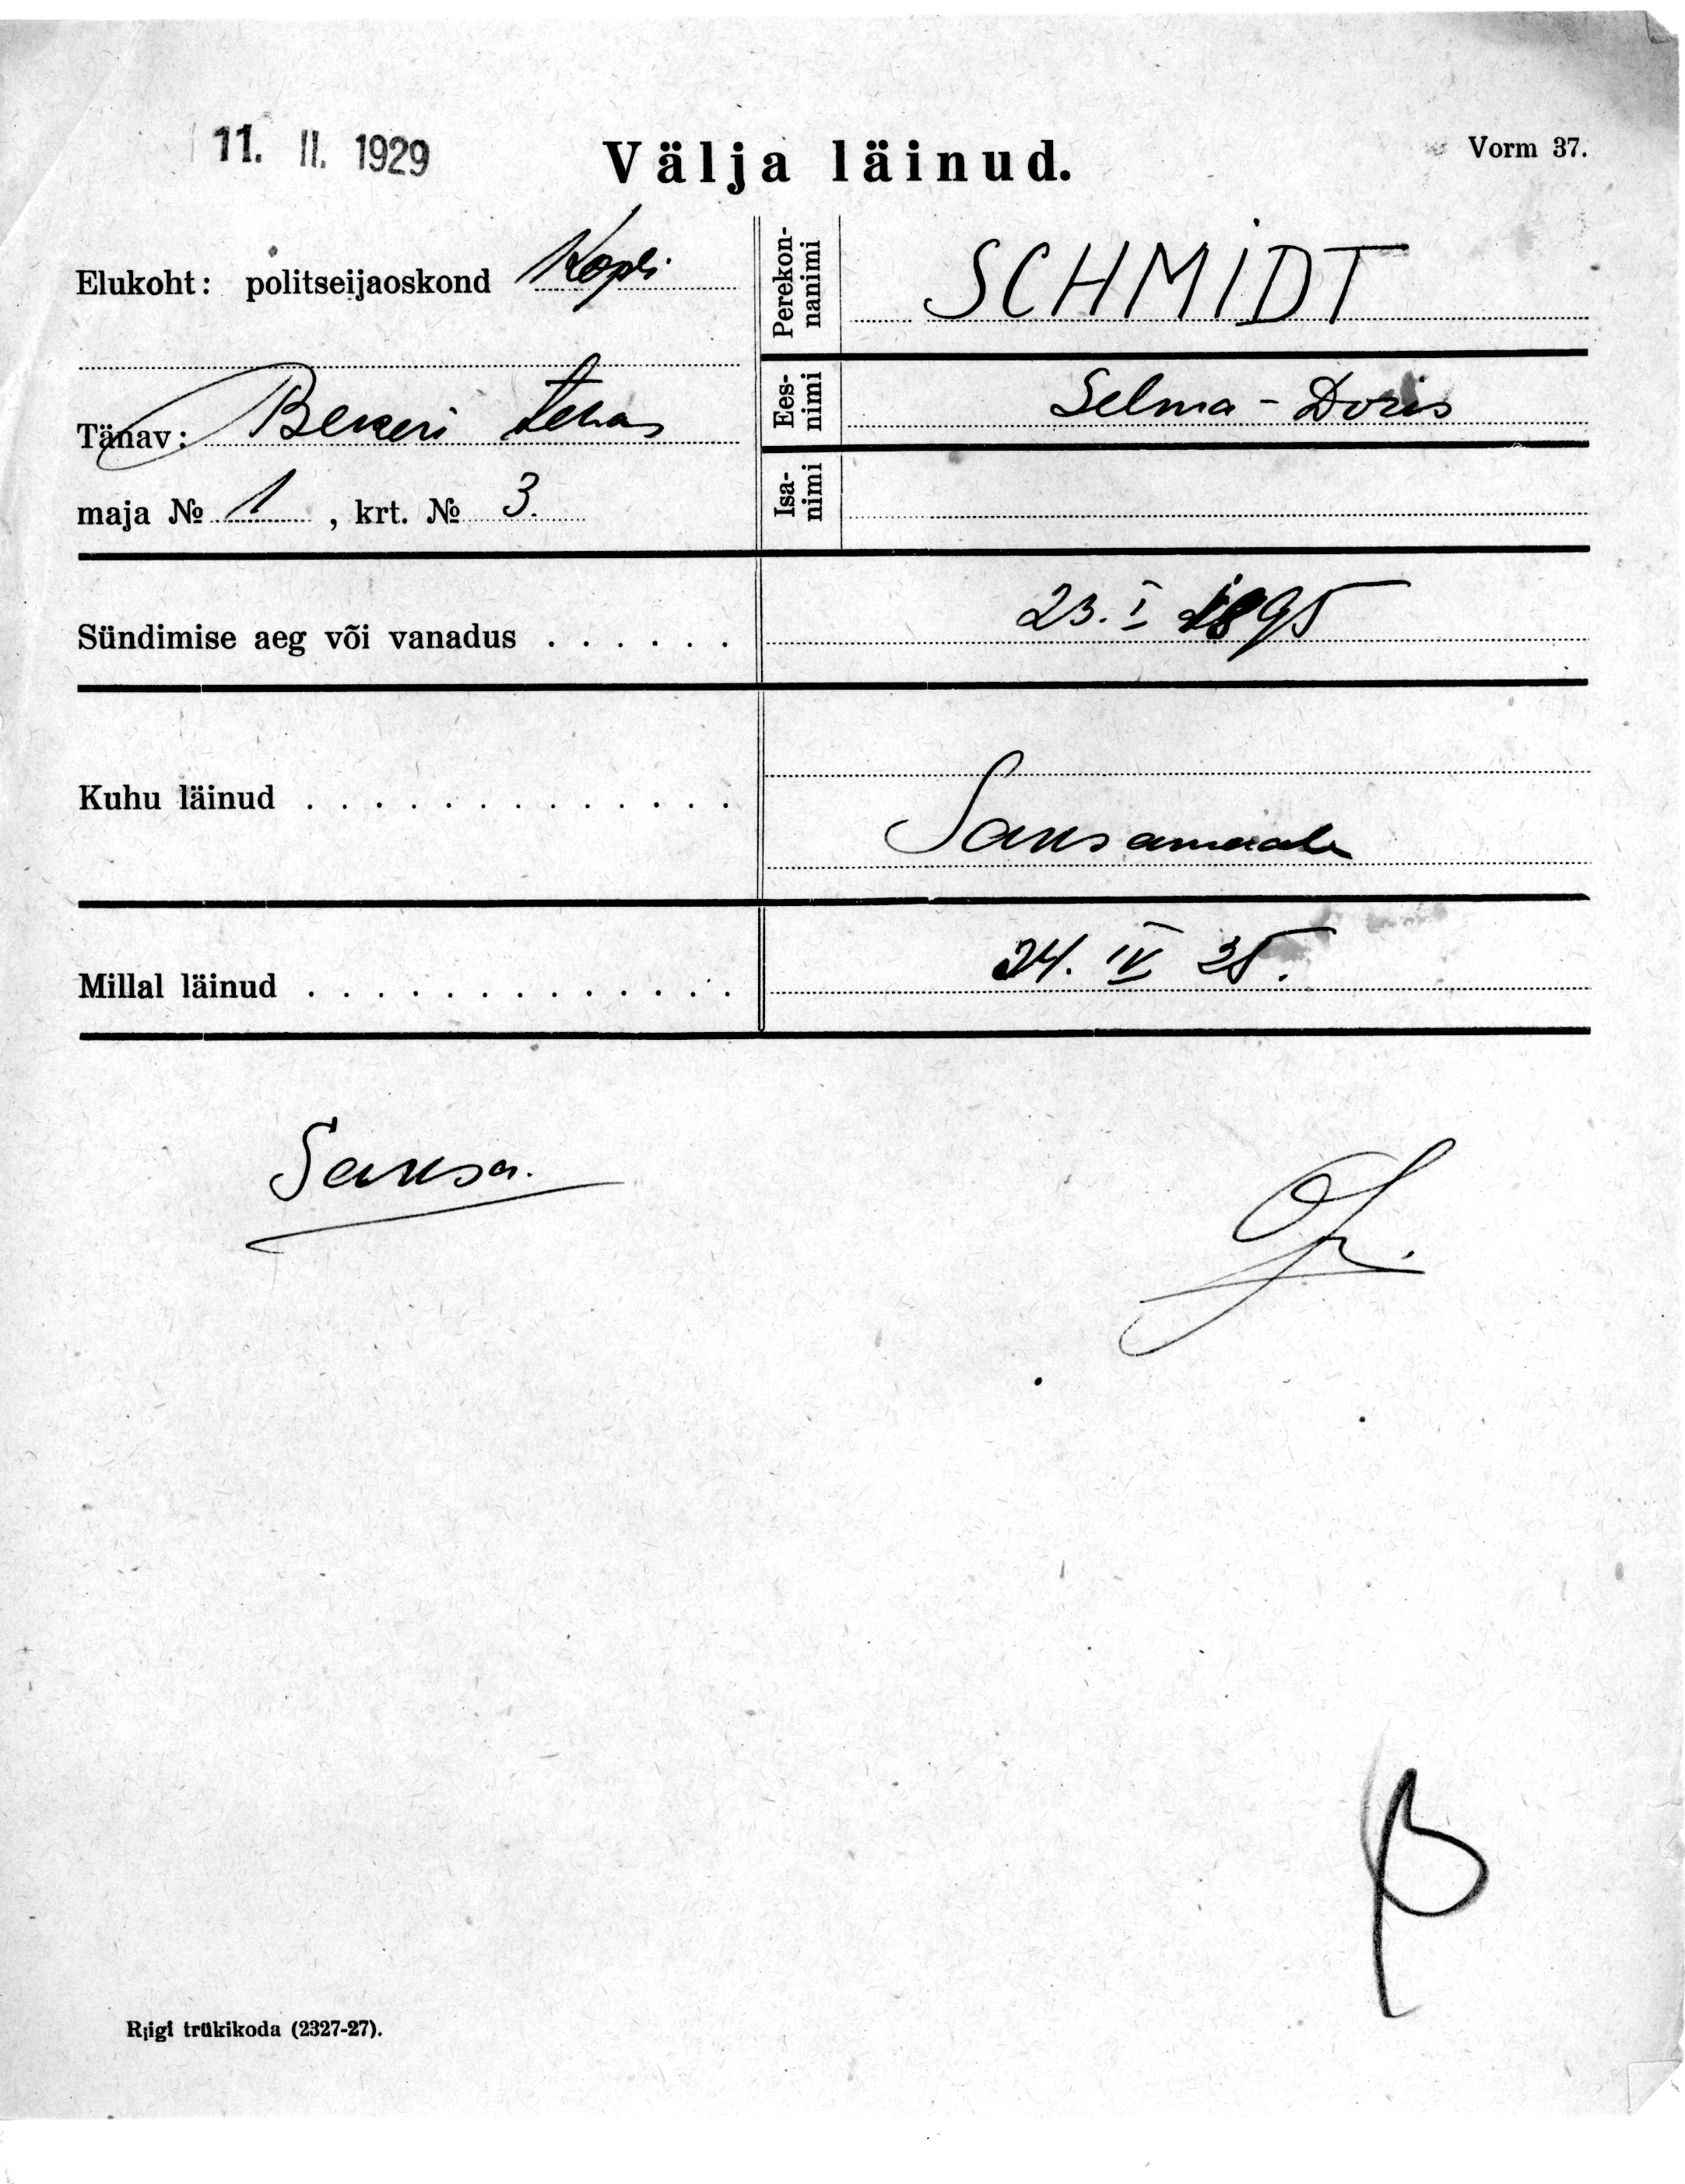 11. II. 1929
Välja läinud.
Vorm 37.
Elukoht: politseijaoskond Kopli
Tänav: Bekeri tehas
maja № 1, krt. № 3.
Perekon-
nanimi
SCHMIDT
Ees-
nimi
Selma-Doris
Isa-
nimi
Sündimise aeg või vanadus . . . . . . 23. I 1895
Kuhu läinud . . . . . . . . . . . . . Saksamaale
Millal läinud . . . . . . . . . . . . . 24. IV 25.
Saksa.
Riigi trükikoda (2327-27).